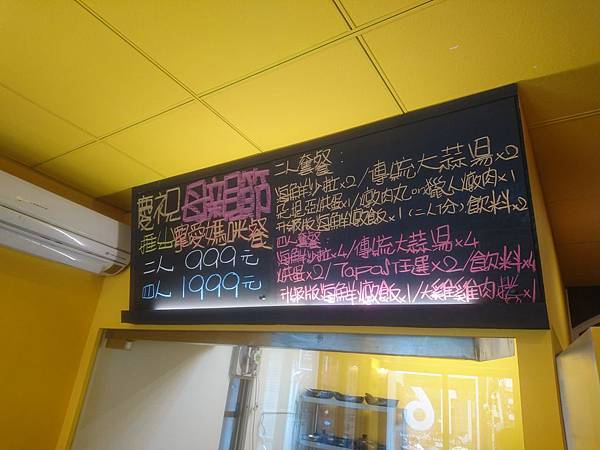 慶祝母親節
推出寵愛媽咪餐
二人 999元
四人 1999元
二人套餐:
海鮮沙拉x2/傳統大蒜湯x2
烘蛋x1/燉肉丸or獵人燉肉x1
升級版海鮮燉飯x1(二人份)飲料x2
四人套餐
海鮮沙拉x4/傳統大蒜湯x4
烘蛋x2/Tapas任選x2/飲料x4
升級版海鮮燉飯x1/大雞雞肉捲x1
6